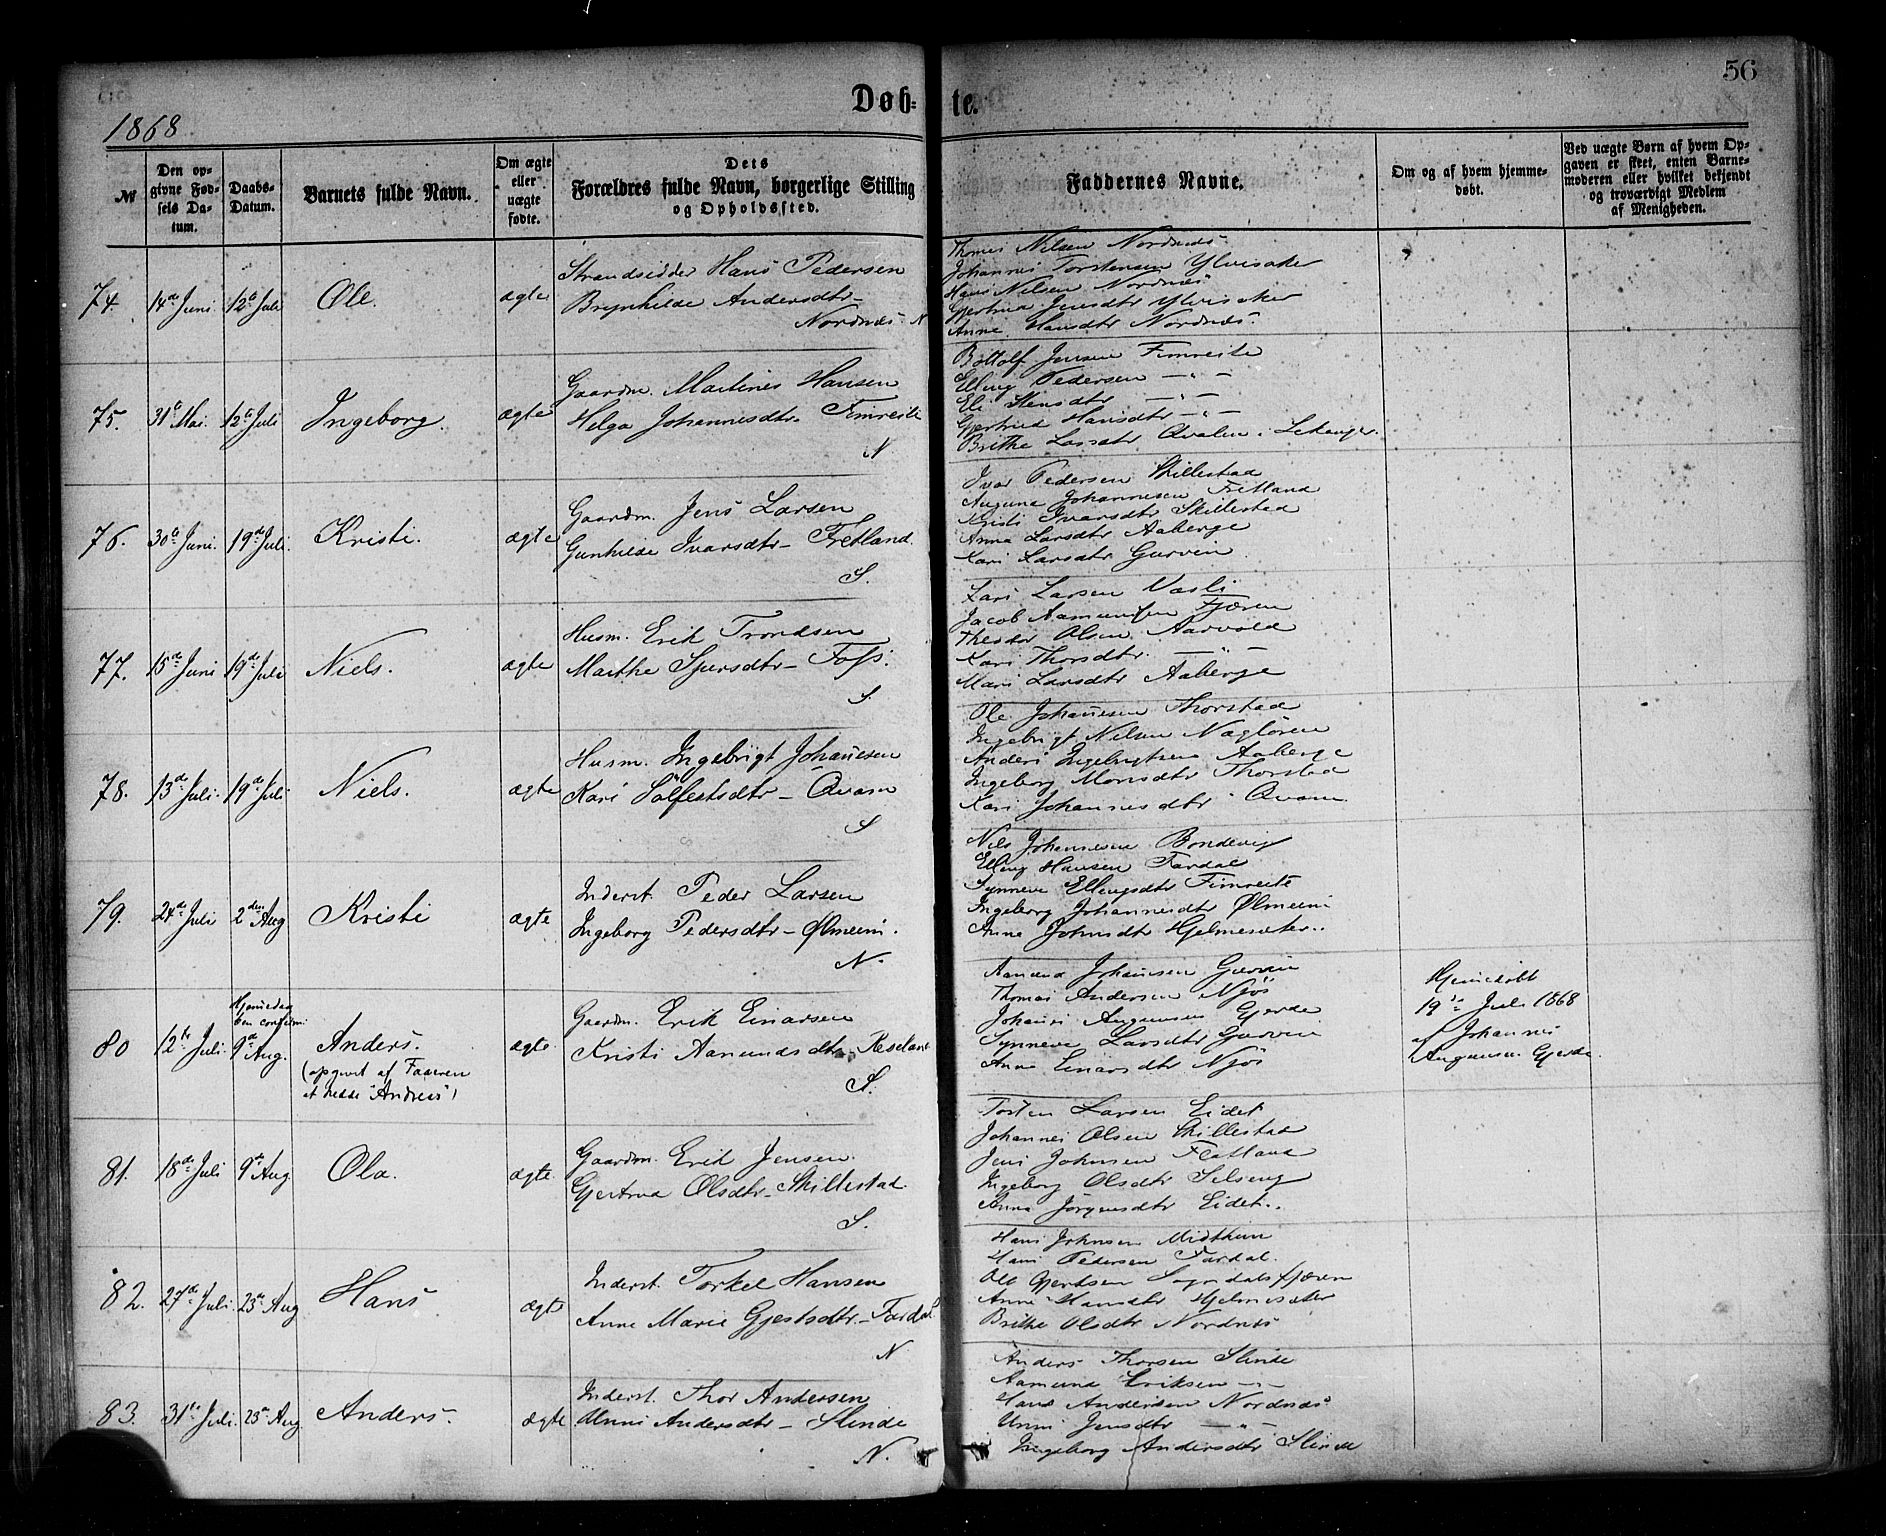 56
Døb=te.
1868
№
Den opgivne Fødsels Datum.
Daabs-Datum.
Barnets fulde Navn.
Om ægte eller uægte fødte.
Dets Forældres fulde Navn, borgerlige Stilling og Opholdssted.
Faddernes Navne.
Om og af hvem hjemmedøbt.
Ved uægte Børn af hvem Opgaven er skeet, enten Barnemoderen eller hvilket bekjendt og troværdigt Medlem af Menigheden.
74. 14de Juni 12te Juli Ole. ægte
Strandsidder Hans Pedersen
Brynhilde Andersdtr-
Nordnæs. N
Thomas Nilsen Nordnæs
Johannes Torstensen Ylvisaker
Hans Nilsen Nordnæs
Gjertrud Jensdtr Ylvisaker
Anna Hansdtr Nordnæs.
75. 31te Mai. 12te Juli Ingeborg. ægte
Gaardm. Martines Hansen
Helga Johannesdtr. Fimreite
N
Bottolf Jensen Fimreite
Elling Pedersen —"—
Eli Jensdtr —"—
Gjertrud Hansdtr —"—
Brithe Larsdtr Qvalen i Lekanger.
76. 30te Juni. 19de Juli. Kristi. ægte
Gaardm. Jens Larsen
Gunhilde Ivarsdtr- Fretland.
S.
Ivar Pedersen Skillestad
Johannesen Fretland
Kristi Ivarsdtr Skillestad
Anna Larsdtr Aaberge
Kari Larsdtr Gurvin
77. 15de Juni 19de Juli Niels. ægte
Husm. Erik Trondsen
Marthe Sjursdtr- Foss.
S.
Lars Larsen Væsli
Jacob Aamundsen Fjæren
Theodor Olsen Aarvold
Kari Thorsdtr. —"—
Mari Larsdtr Aaberge
78. 13de Juli. 19de Juli Niels. ægte
Husm. Ingebrigt Johannesen
Kari Sølfestsdtr- Qvam
S
Ole Johannesen Thorstad
Ingebrigt Nilsen Nagløren
Anders Ingebrigtsen Aaberge
Ingeborg Monsdtr Thorstad
Kari Johannesdtr Qvam
79. 24de Juli 2den Aug Kristi ægte
Inderst. Peder Larsen
Ingeborg Pedersdtr- Ølmeim.
N.
Nils Johannesen Bondevig
Elling Hansen Fardal
Synneve Ellingsdtr Fimreite
Ingeborg Johannesdtr Ølmeim
Anna Johnsdtr Hjelmesæter..
80 12te Juli.
Hjemmedøb
9de Aug.
Anders.
(opgivet af Faderen
at hedde "Andreas")
ægte.
Gaardm. Erik Einarsen
Kristi Aamundsdtr- Reseland
S.
Aamund Johannesen Gurvin
Thomas Andersen Njøs
Johannes Gjerde
Synneve Larsdtr Gurvin
Anna Einarsdtr Njøs
Hjemedøbt
19de Juli 1868
af Johannes
Gjerde.
81. 18de Juli 9de Aug. Ola. ægte.
Gaardm. Erik Jensen.
Gjertrud Olsdtr- Skillestad.
S.
Torsten Larsen Eidet
Johannes Olsen Skillestad
Jens Johnsen Flatland
Ingeborg Olsdtr Selseng
Anna Jørgensdtr Eidet..
82. 27de Juli. 23de Aug Hans ægte
Inderst. Torkel Hansen
Anne Marie Gjestsdtr.- Fardal
N
Hans Johnsen Midthun
Hans Pedersen Fardal.
Ole Gjertsen Sogndalsfjæren
Anna Hansdtr Hjelmesæter
Brithe Olsdtr Nordnæs
83. 31te Juli. 23de Aug Anders. ægte
Inderst. Thor Andersen
Unni Andersdtr- Slinde
N.
Anders Thorsen Slinde
Aamund Eriksen —"—
Hans Andersen Nordnæs
Unni Jensdtr —"—
Ingeborg Andersdtr Slinde